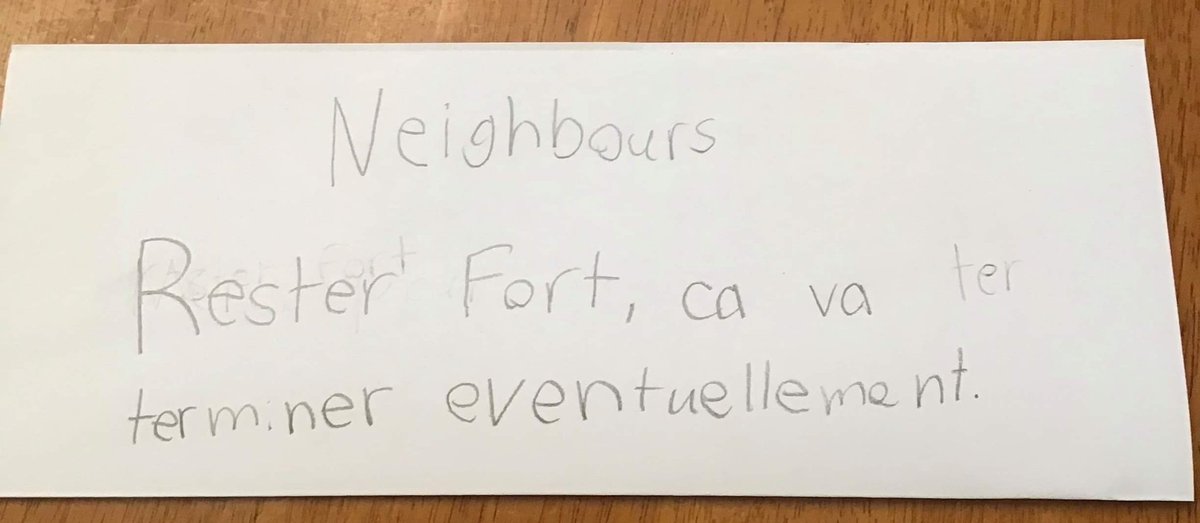 Neighbours
Rester Fort, ca va ter
terminer eventuellement.